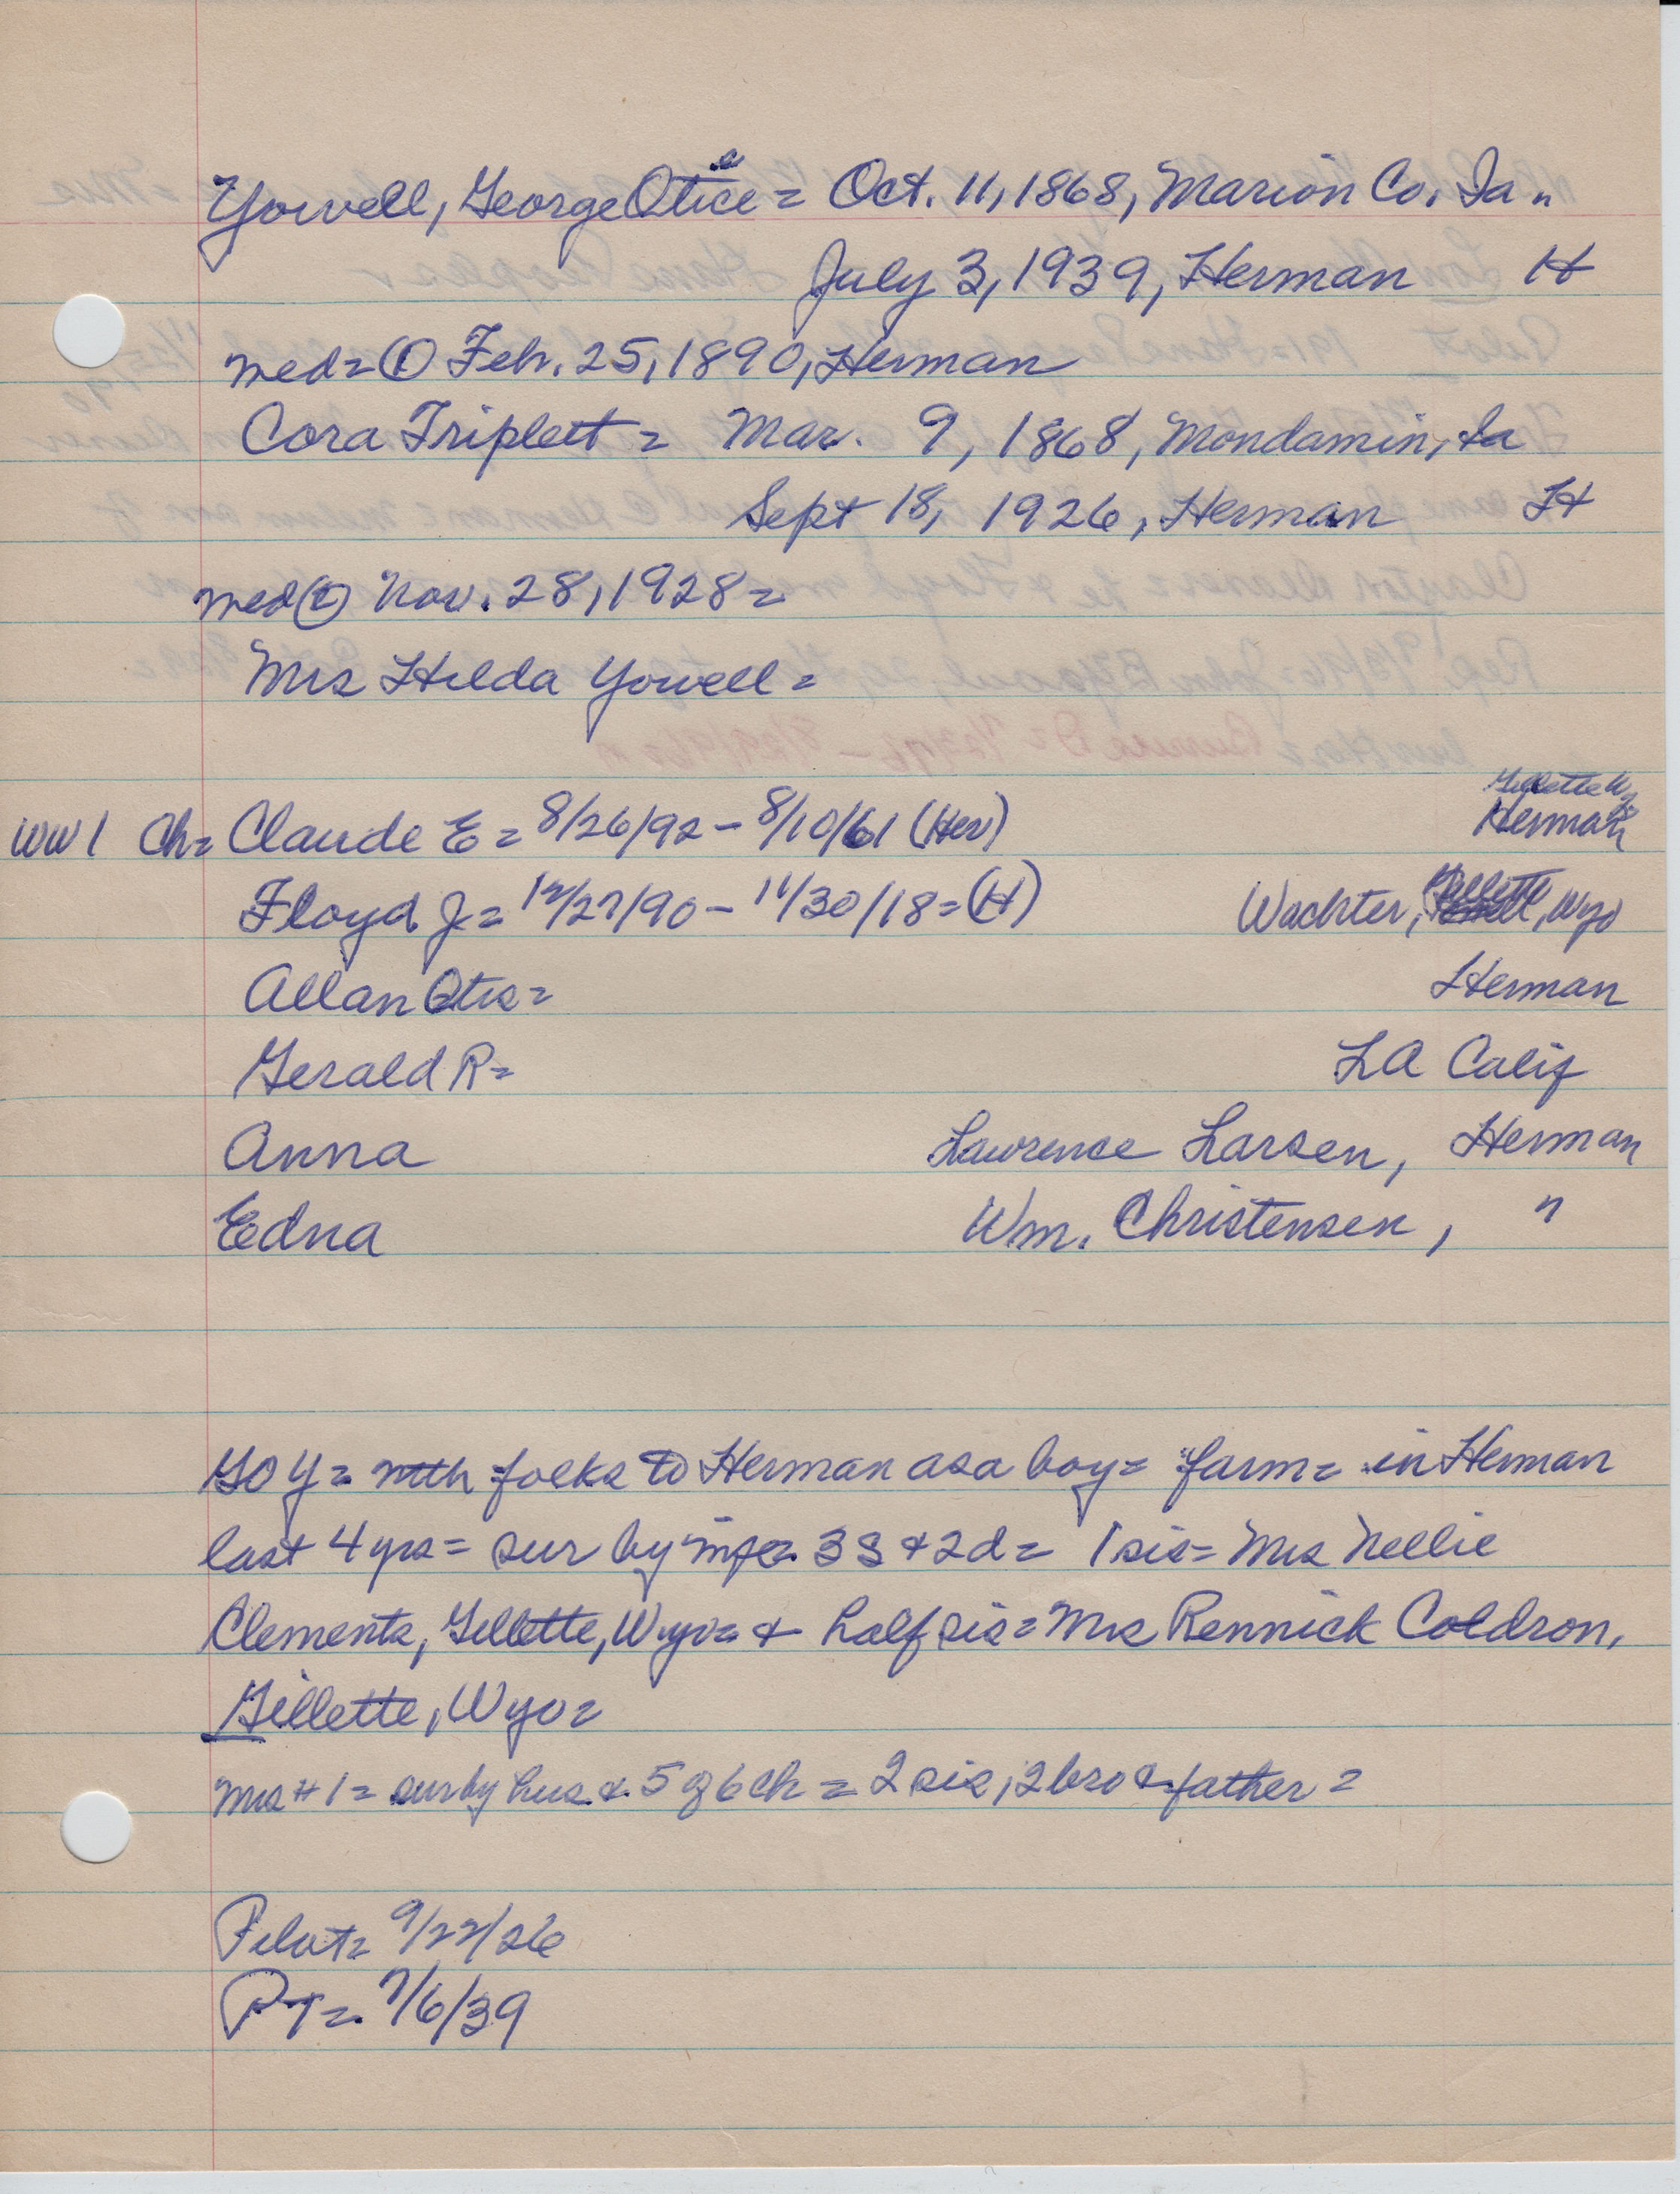 Yowell, George Otice = Oct. 11, 1868, Marion Co. Ia "
July 3, 1939, Herman H
med = ① Feb. 25, 1890, Herman
Cora Triplett = Mar. 9, 1868, Mondamin, Ia
Sept 18, 1926, Herman H
med ② Nov. 28, 1928 =
Mrs Hilda Yowell =
Gillette Wy
WW1 Ch = Claude E = 8/26/92 - 8/10/61 (Her) Herman
Floyd J = 12/27/90 - 11/30/18 = (H) Wachter, Wyo
Allan Otis = Herman
Gerald R = LA Calif
Anna Lawrence Larsen, Herman
Edna Wm. Christensen, "
GOY = with folks to Herman as a boy = farm = in Herman
last 4 yrs = sur by 3 S + 2 d = 1 sis = Mrs Nellie
Clements, Gillette, Wyo = + half sis = Mrs Rennick Coldron,
Gillette, Wyo =
Mrs #1 = sur by hus. & 5 of 6 ch = 2 sis, 2 bro & father =
Pilot = 9/22/26
PT = 7/6/39